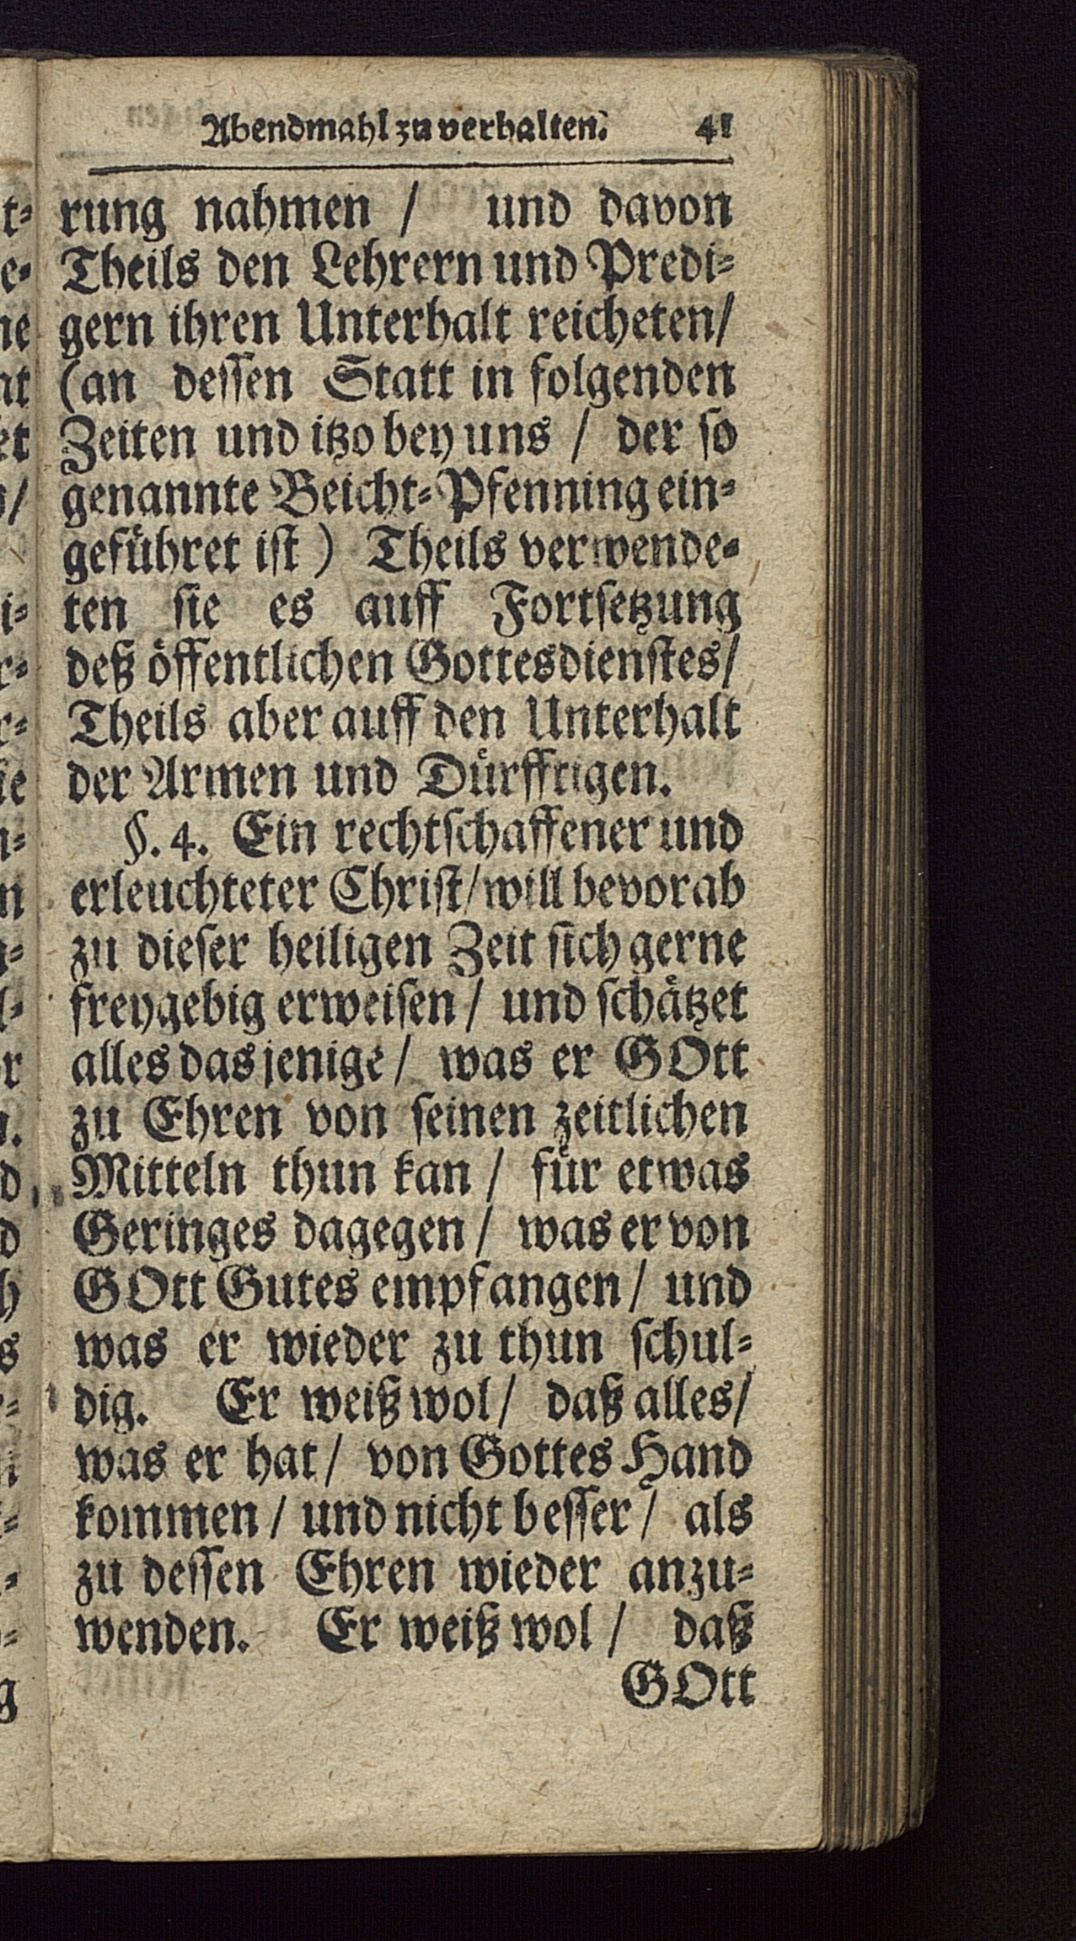 Abendmahl zu verhalten. 41
rung nahmen / und davon
Theils den Lehrern und Predi-
gern ihren Unterhalt reicheten/
(an dessen Statt in folgenden
Zeiten und itzo bey uns / der so
genannte Beicht-Pfenning ein-
geführet ist) Theils verwende-
ten sie es auff Fortsetzung
deß öffentlichen Gottesdienstes/
Theils aber auff den Unterhalt
der Armen und Dürfftigen.
§. 4. Ein rechtschaffener und
erleuchteter Christ/will bevorab
zu dieser heiligen Zeit sich gerne
freygebig erweisen / und schätzet
alles dasjenige / was er GOtt
zu Ehren von seinen zeitlichen
Mitteln thun kan / für etwas
Geringes dagegen / was er von
GOtt Gutes empfangen / und
was er wieder zu thun schul-
dig. Er weiß wol / daß alles/
was er hat / von Gottes Hand
kommen / und nicht besser / als
zu dessen Ehren wieder anzu-
wenden. Er weiß wol / daß
GOtt